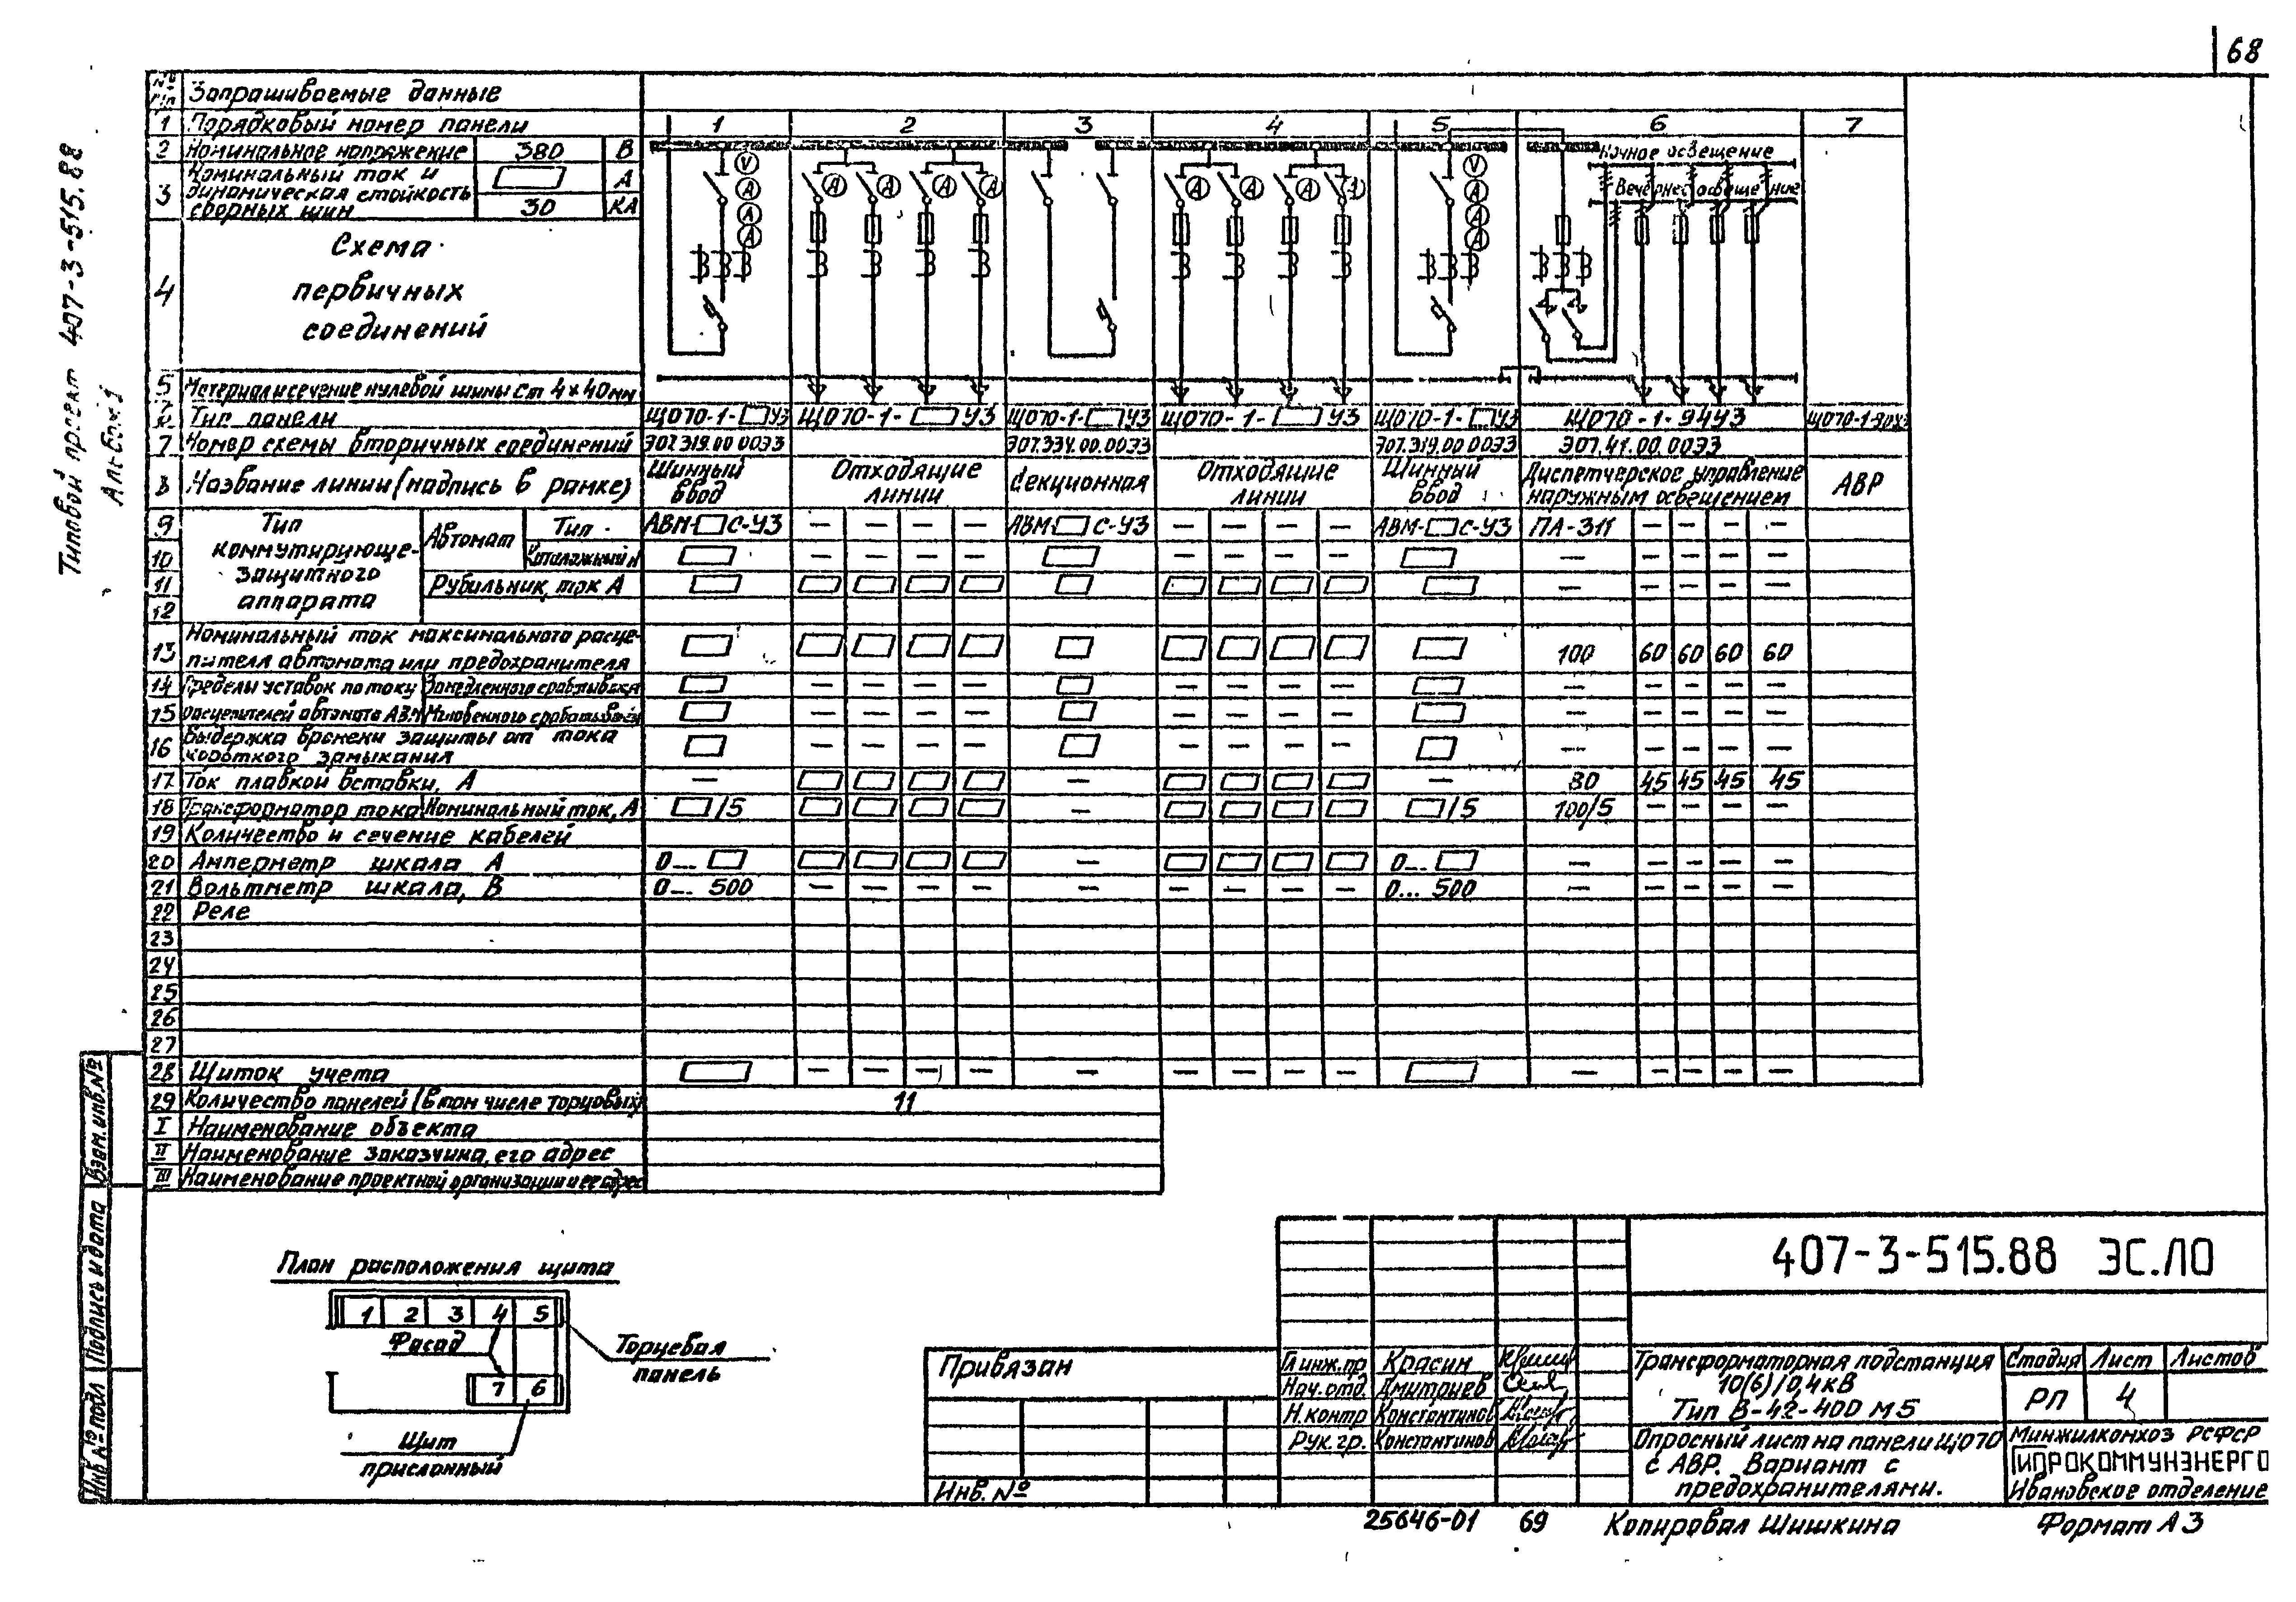 68
Типовой проект 407-3-515.88
Альбом 1
№ п/п Запрашиваемые данные
1 Порядковый номер панели 1 2 3 4 5 6 7
2 Номинальное напряжение 380 В
3 Номинальный ток и динамическая стойкость сборных шин А
30 КА
4 Схема первичных соединений
V A A A
A A A A
A A A A
V A A A
Ночное освещение
Вечернее освещение
5 Материал и сечение нулевой шины Ст 4×40мм
6 Тип панели ЩО70-1-▭У3 ЩО70-1-▭У3 ЩО70-1-▭У3 ЩО70-1-▭У3 ЩО70-1-▭У3 ЩО70-1-94У3
7 Номер схемы вторичных соединений Э07.319.00.00ЭЗ Э07.334.00.00ЭЗ Э07.319.00.00ЭЗ Э07.41.00.00ЭЗ
8 Название линии (надпись в рамке) Шинный ввод Отходящие линии Секционная Отходящие линии Шинный ввод Диспетчерское управление наружным освещением АВР
Тип коммутирующе-защитного аппарата
9 Автомат Тип АВМ-▭С-У3 — — — — АВМ-▭С-У3 — — — — АВМ-▭С-У3 ПА-311 — — — —
10 Каталожный № ▭ — — — — ▭ — — — — ▭ — — — — —
11 Рубильник, ток А ▭ ▭ ▭ ▭ ▭ ▭ ▭ ▭ ▭ ▭ ▭ — — — — —
12
13 Номинальный ток максимального расце-
пителя автомата или предохранителя ▭ ▭ ▭ ▭ ▭ ▭ ▭ ▭ ▭ ▭ ▭ 100 60 60 60 60
14 Пределы уставок по току Замедленного срабатыван. ▭ — — — — ▭ — — — — ▭ — — — — —
15 расцепителей автомата АВМ Мгновенного срабатыван. ▭ — — — — ▭ — — — — ▭ — — — — —
16 Выдержка времени защиты от тока
короткого замыкания ▭ — — — — ▭ — — — — ▭ — — — — —
17 Ток плавкой вставки, А — ▭ ▭ ▭ ▭ — ▭ ▭ ▭ ▭ — 80 45 45 45 45
18 Трансформатор тока Номинальный ток, А ▭/5 ▭ ▭ ▭ ▭ — ▭ ▭ ▭ ▭ ▭/5 100/5 — — — —
19 Количество и сечение кабелей
20 Амперметр шкала А 0... ▭ ▭ ▭ ▭ ▭ — ▭ ▭ ▭ ▭ 0... ▭ — — — — —
21 Вольтметр шкала, В 0... 500 — — — — — — — — — 0... 500 — — — — —
22 Реле
23
24
25
26
27
28 Щиток учета ▭ — — — — — — — — — ▭ — — — — —
29 Количество панелей (в том числе торцовых) 11
I Наименование объекта
II Наименование заказчика, его адрес
III Наименование проектной организации и ее адрес
Взам. инв. №
Подпись и дата
Инв № подл
План расположения щита
1 2 3 4 5
Фасад
7 6
Торцевая панель
Щит прислонный
Привязан
Инв. №
Гл.инж.пр. Красин
Нач.отд. Дмитриев
Н.контр Константинов
Рук.гр. Константинов
407-3-515.88 ЭС.ЛО
Трансформаторная подстанция
10(6)/0,4кВ
Тип В-42-400 М5
Стадия Лист Листов
РП 4
Опросный лист на панели ЩО70
с АВР. Вариант с
предохранителями.
Минжилкомхоз РСФСР
ГИПРОКОММУНЭНЕРГО
Ивановское отделение
25646-01 69 Копировал Шишкина Формат А3